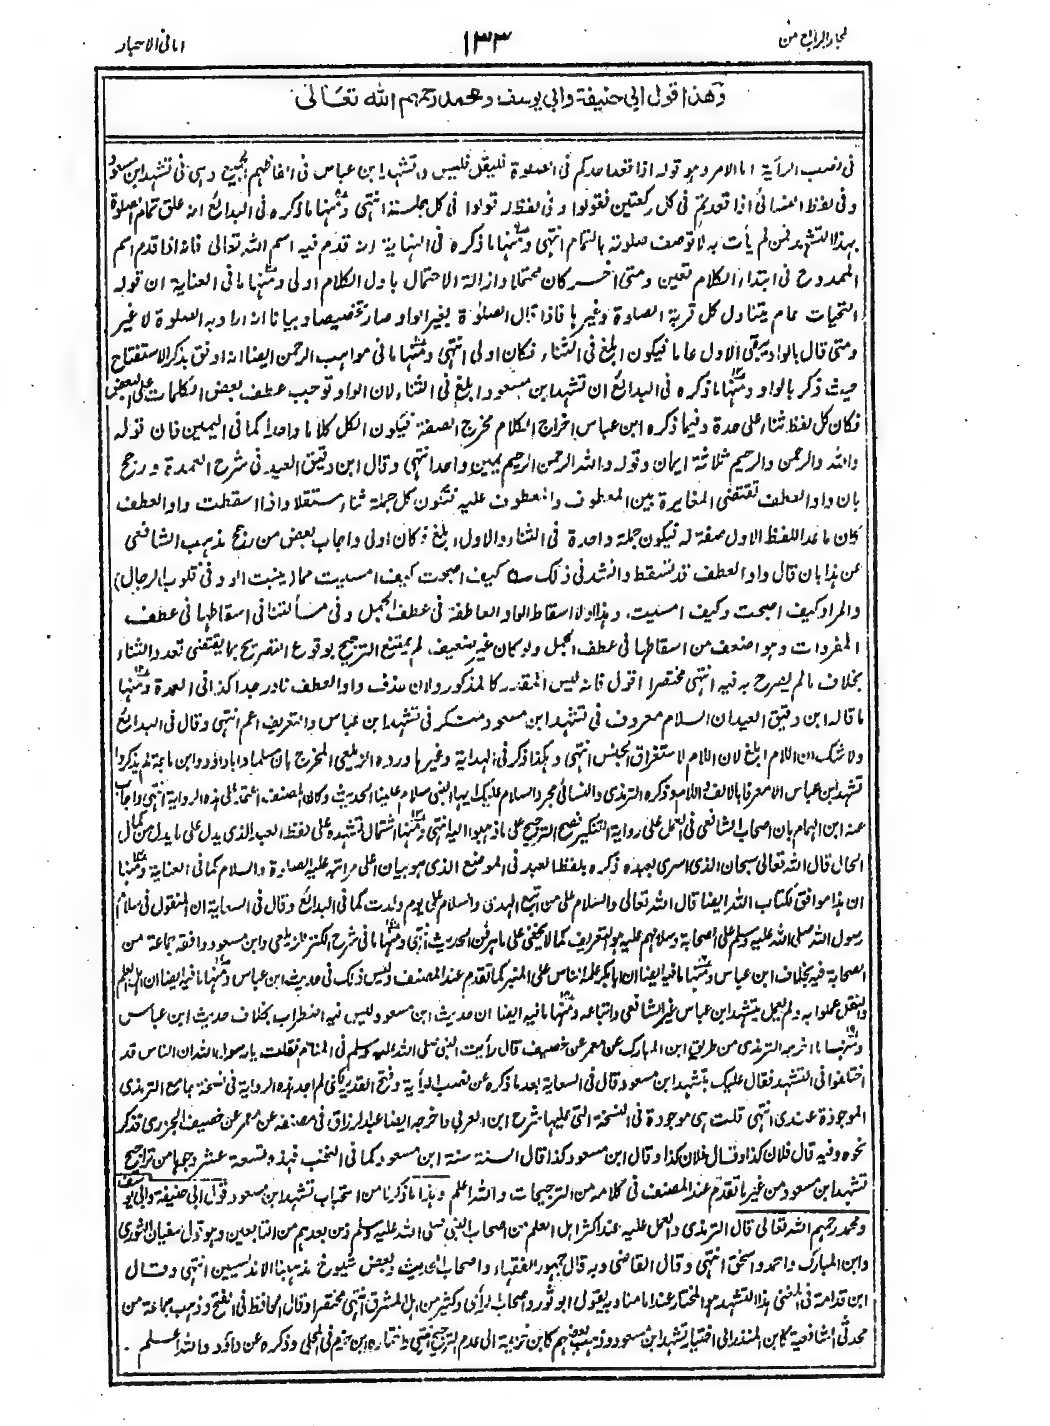 المجلد الرابع من
١٣٣
امانی الاحبار
وهذا قول ابی حنیفة وابی یوسف ومحمد رحمهم الله تعالیٰ
فی نصب الرأیة اما الامر وهو قوله اذا قعد احدکم فی الصلوة فلیقل فلیس فی تشهد ابن عباس فی الفاظهم الجمیع وهی فی تشهد ابن مسعود
وفی لفظ النسائی اذا قعدتم فی کل رکعتین فقولوا وفی لفظ له قولوا فی کل جلسة انتهی ومنها ما ذکره فی البدائع انه علق تمام الصلوة
بهذا التشهد فمن لم یأت به لا توصف صلوته بالتمام انتهی ومنها ما ذکره فی النهایة انه قدم فیه اسم الله تعالی فانه اذا قدم اسم
الممدوح فی ابتداء الکلام تعین ومتی اخر کان محتملا وازالة الاحتمال باول الکلام اولی ومنها ما فی العنایة ان قوله
التحیات عام یتناول کل قربة الصلوة وغیرها فاذا قال الصلوٰة بغیر الواو صار تخصیصا وبیانا انه اراد به الصلوة لا غیر
ومتی قال بالواو یبقی الاول عاما فیکون ابلغ فی الثناء فکان اولی انتهی ومنها ما فی مواهب الرحمن ایضا انه اوفق بذکر الاستفتاح
حیث ذکر بالواو ومنها ما ذکره فی البدائع ان تشهد ابن مسعود ابلغ فی الثناء لان الواو توجب عطف بعض الکلمات علی البعض
فکان کل لفظ ثناء علی حدة وفیما ذکره ابن عباس اخراج الکلام مخرج الصفة فیکون الکل کلاما واحدا کما فی الیمین فان قوله
والله والرحمن والرحیم ثلاثة ایمان وقوله والله الرحمن الرحیم یمین واحد انتهی وقال ابن دقیق العید فی شرح العمدة ورجح
بان واو العطف تقتضی المغایرة بین المعطوف والمعطوف علیه فتکون کل جملة ثناء مستقلا واذا اسقطت واو العطف
کان ما عدا اللفظ الاول صفة له فیکون جملة واحدة فی الثناء والاول ابلغ فکان اولی واجاب بعض من رجح مذهب الشافعی
عن هذا بان قال واو العطف قد تسقط وانشد فی ذلک کیف اصبحت کیف امسیت مما (ینبت الود فی قلوب الرجال)
والمراد کیف اصبحت وکیف امسیت، وهذا اولا اسقاط الواو العاطفة فی عطف الجمل وفی مسألتنا فی اسقاطها فی عطف
المفردات وهو اضعف من اسقاطها فی عطف الجمل ولو کان غیر ضعیف، لم یمتنع الترجیح بوقوع التصریح بما یقتضی تعدد الثناء
بخلاف ما لم یصرح به فیه انتهی مختصرا اقول فانه لیس المقدر کالمذکور ولان حذف واو العطف نادر جدا کذا فی العمدة ومنها
ما قاله ابن دقیق العید ان السلام معروف فی تشهد ابن مسعود منکر فی تشهد ابن عباس والتعریف اعم انتهی وقال فی البدائع
ولا شک ان اللام ابلغ لان اللام لاستغراق الجنس انتهی وهکذا ذکر فی الهدایة وغیرها ورده الزیلعی المخرج بان مسلما وابا داود وابن ماجة لم یذکروا
تشهد ابن عباس الا معرفا بالالف واللام وذکره الترمذی والنسائی مجردا سلام علیک ایها النبی سلام علینا الحدیث وکان المصنف اعتمد علی هذه الروایة انتهی واجاب
عنه ابن الهمام بان اصحاب الشافعی فی العمل علی روایة التنکیر فصح الترجیح علی ما ذهبوا الیه انتهی ومنها اشتمال تشهده علی لفظ العبد الذی یدل علی ما یدل من کمال
الحال قال الله تعالی سبحان الذی اسری بعبده ذکره بلفظ العبد فی الموضع الذی هو بیان اعلی مراتبه علیه الصلوة والسلام کما فی العنایة ومنها
ان هذا موافق لکتاب الله ایضا قال الله تعالی والسلام علی من اتبع الهدی والسلام علی یوم ولدت کما فی البدائع وقال فی السعایة ان المنقول فی سلام
رسول الله صلی الله علیه وسلم علی اصحابه وسلامهم علیه هو التعریف کما لا یخفی علی ماهر فن الحدیث انتهی ومنها ما فی شرح الکنز للزیلعی وابن مسعود وافقه جماعة من
الصحابة فیه بخلاف ابن عباس ومنها ما فیه ایضا ان ابا بکر علمه الناس علی المنبر کما تقدم عند المصنف ولیس ذلک فی حدیث ابن عباس ومنها ما فیه ایضا ان اهل العلم
والنقل عملوا به ولم یعمل بتشهد ابن عباس غیر الشافعی واتباعه ومنها ما فیه ایضا ان حدیث ابن مسعود لیس فیه اضطراب بخلاف حدیث ابن عباس
ومنها ما اخرجه الترمذی من طریق ابن المبارک عن معمر عن خصیف قال رأیت النبی صلی الله علیه وسلم فی المنام فقلت یا رسول الله ان الناس قد
اختلفوا فی التشهد فقال علیک بتشهد ابن مسعود قال فی السعایة بعد ما ذکره عن نصب الرأیة وفتح القدیر لکنی لم اجد هذه الروایة فی نسخة جامع الترمذی
الموجودة عندی انتهی قلت هی موجودة فی النسخة التی علیها شرح ابن العربی واخرجه ایضا عبد الرزاق فی مصنفه عن معمر عن خصیف الجزری فذکر
نحوه وفیه قال فلان کذا وقال فلان کذا وقال ابن مسعود کذا قال السنة سنة ابن مسعود کما فی النخب فهذه تسعة عشر وجها من تراجیح
تشهد ابن مسعود من غیر ما تقدم عند المصنف فی کلامه من الترجیحات والله اعلم وهذا ما ذکرنا من استحباب تشهد ابن مسعود قول ابی حنیفة وابی یوسف
ومحمد رحمهم الله تعالی قال الترمذی والعمل علیه عند اکثر اهل العلم من اصحاب النبی صلی الله علیه وسلم ومن بعدهم من التابعین وهو قول سفیان الثوری
وابن المبارک واحمد واسحٰق انتهی وقال القاضی وبه قال جمهور الفقهاء واصحاب الحدیث وبعض شیوخ مذهبنا الاندلسیین انتهی وقال
ابن قدامة فی المغنی هذا التشهد هو المختار عند امامنا وبه یقول ابو ثور واصحاب الرأی وکثیر من اهل المشرق انتهی مختصرا وقال الحافظ فی الفتح وذهب جماعة من
محدثی الشافعیة کابن المنذر الی اختیار تشهد ابن مسعود وذهب بعضهم کابن خزیمة الی عدم الترجیح انتهی واختاره ابن حزم فی المحلی وذکره عن داؤد والله اعلم .